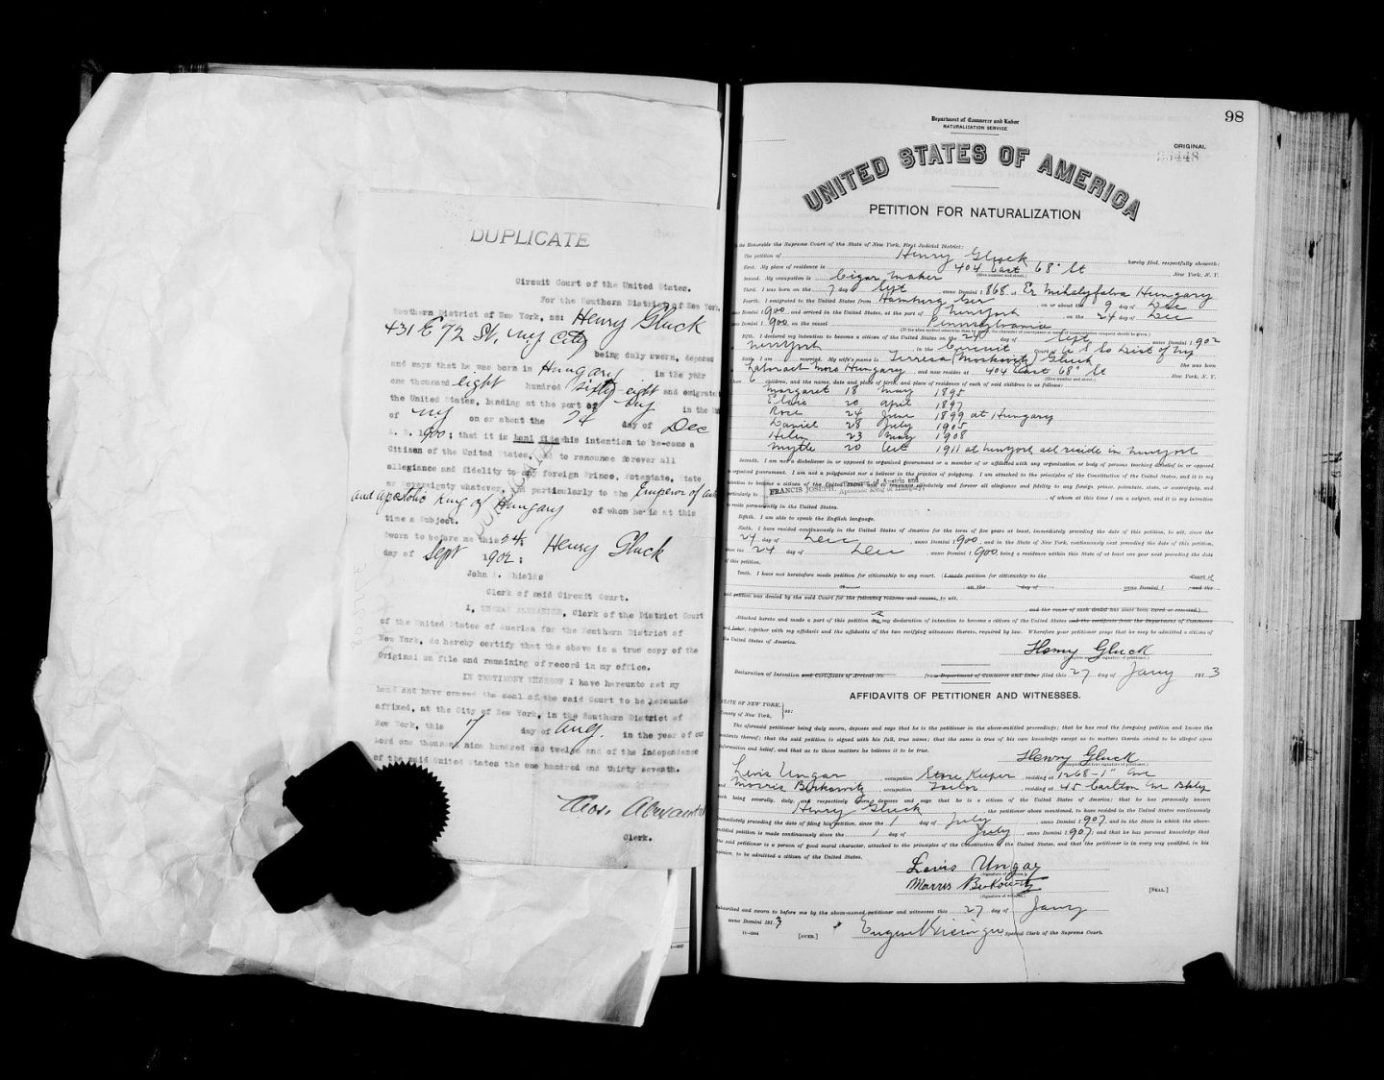 DUPLICATE
Circuit Court of the United States.
For the Southern District of New York.
Southern District of New York, ss: Henry Gluck
431 E 72 St, ny city
being duly sworn, deposes
and says that he was born in Hungary in the year
one thousand eight hundred sixty eight and emigrated
the United States, landing at the port of ny in the
of ny on or about the 24 day of Dec
A. D. 1900; that it is bona fide his intention to be-come a
Citizen of the United States, to renounce forever all
allegiance and fidelity to any foreign Prince, Potentate, tate
or Sovereignty whatever, particularly to the Emperor of
and apostolic King of Hungary of whom he is at this
time a Subject.
Sworn to before me this 24
day of Sept 1902: Henry Gluck
John A. Shields
Clerk of said Circuit Court.
I, THOMAS ALEXANDER, Clerk of the District Court
of the United States of America for the Southern District of
New York, do hereby certify that the above is a true copy of the
Original on file and remaining of record in my office.
IN TESTIMONY WHEREOF I have hereunto set my
hand and have caused the seal of the said Court to be hereunto
affixed, at the City of New York, in the Southern District of
New York, this 7 day of Aug. in the year of our
Lord one thousand nine hundred and twelve and of the Independence
of the said United States the one hundred and thirty seventh.
Thos. Alexander
Clerk.
98
Department of Commerce and Labor
NATURALIZATION SERVICE
ORIGINAL
UNITED STATES OF AMERICA
PETITION FOR NATURALIZATION
the Honorable the Supreme Court of the State of New York, First Judicial District:
The petition of Henry Gluck hereby filed, respectfully showeth:
First. My place of residence is 404 East 68" St New York, N. Y.
Second. My occupation is Cigar maker
Third. I was born on the 7 day of Sept, anno Domini 1868 at Er Mihalyfalva Hungary
Fourth. I emigrated to the United States from Hamburg Ger, on or about the 9 day of Dec
anno Domini 1900, and arrived in the United States, at the port of Newyork on the 24 day of Dec
anno Domini 1900, on the vessel Pennsylvania
Fifth. I declared my intention to become a citizen of the United States on the 24 day of Sept anno Domini 1902
Newyork, in the Circuit Court of U S So Dist of Ny
Sixth. I am married. My wife's name is Terresa Moskowitz Gluck She was born
Hungary and now resides at 404 East 68" St New York, N. Y.
children, and the name, date and place of birth, and place of residence of each of said children is as follows:
Margaret 18 May 1895
20 April 1897
Rose 24 June 1899 at Hungary
Daniel 28 July 1905
Helen 23 May 1908
Myrtle 20 Oct 1911 at Newyork all reside in Newyork
Seventh. I am not a disbeliever in or opposed to organized government or a member of or affiliated with any organization or body of persons teaching disbelief in or opposed
to organized government. I am not a polygamist nor a believer in the practice of polygamy. I am attached to the principles of the Constitution of the United States, and it is my
intention to become a citizen of the United States and to renounce absolutely and forever all allegiance and fidelity to any foreign prince, potentate, state, or sovereignty, and
particularly to FRANCIS JOSEPH, Emperor of Austria and Apostolic King of Hungary, of whom at this time I am a subject, and it is my intention
to reside permanently in the United States.
Eighth. I am able to speak the English language.
Ninth. I have resided continuously in the United States of America for the term of five years at least, immediately preceding the date of this petition, to wit, since the
24 day of Dec, anno Domini 1900, and in the State of New York, continuously next preceding the date of this petition,
since the 24 day of Dec, anno Domini 1900, being a residence within this State of at least one year next preceding the date
of this petition.
Tenth. I have not heretofore made petition for citizenship to any court. (I made petition for citizenship to the Court of
at on the day of anno Domini 1 and the
said petition was denied by the said Court for the following reasons and causes, to wit,
and the cause of such denial has since been cured or removed.)
Attached hereto and made a part of this petition is my declaration of intention to become a citizen of the United States and the certificate from the Department of Commerce
and Labor, together with my affidavit and the affidavits of the two verifying witnesses thereto, required by law. Wherefore your petitioner prays that he may be admitted a citizen of
the United States of America.
Henry Gluck
Declaration of Intention and Certificate of Arrival No. from Department of Commerce and Labor filed this 27 day of Jany 1913
AFFIDAVITS OF PETITIONER AND WITNESSES.
STATE OF NEW YORK,
County of New York, ss:
The aforesaid petitioner being duly sworn, deposes and says that he is the petitioner in the above-entitled proceedings; that he has read the foregoing petition and knows the
contents thereof; that the said petition is signed with his full, true name; that the same is true of his own knowledge except as to matters therein stated to be alleged upon
information and belief, and that as to those matters he believes it to be true.
Henry Gluck
Louis Ungar, occupation Store Keeper, residing at 1268-1" Ave
and Morris Berkowitz, occupation Tailor, residing at 45 Carlton Ave Bklyn
each being severally, duly, and respectively sworn, deposes and says that he is a citizen of the United States of America; that he has personally known
Henry Gluck, the petitioner above mentioned, to have resided in the United States continuously
immediately preceding the date of filing his petition, since the 1 day of July, anno Domini 1907, and in the State in which the above-
entitled petition is made continuously since the 1 day of July, anno Domini 1907; and that he has personal knowledge that
the said petitioner is a person of good moral character, attached to the principles of the Constitution of the United States, and that the petitioner is in every way qualified, in his
opinion, to be admitted a citizen of the United States.
Louis Ungar
Morris Berkowitz
[SEAL]
Subscribed and sworn to before me by the above-named petitioner and witnesses this 27 day of Jany
anno Domini 1913
[OVER.] Special Clerk of the Supreme Court.